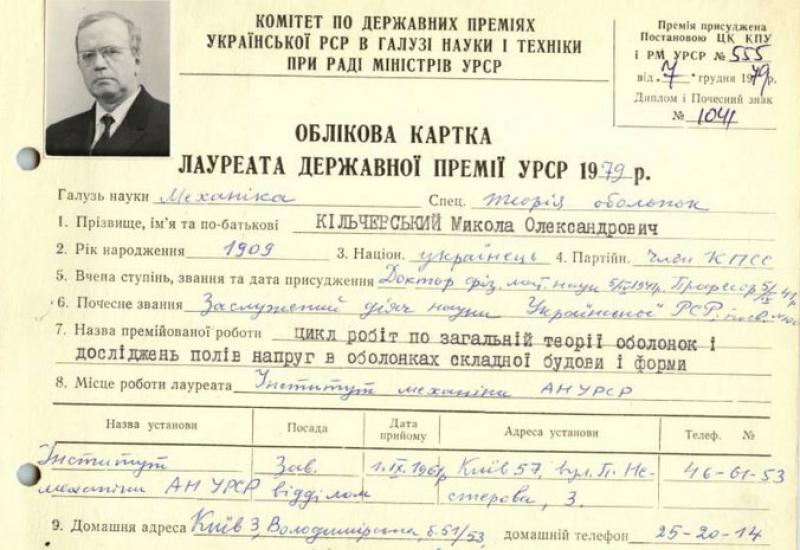 КОМІТЕТ ПО ДЕРЖАВНИХ ПРЕМІЯХ
УКРАЇНСЬКОЇ РСР В ГАЛУЗІ НАУКИ І ТЕХНІКИ
ПРИ РАДІ МІНІСТРІВ УРСР
Премія присуджена
Постановою ЦК КПУ
і РМ УРСР № 555
від „7" грудня 1979 р.
Диплом і Почесний знак
№ 1041
ОБЛІКОВА КАРТКА
ЛАУРЕАТА ДЕРЖАВНОЇ ПРЕМІЇ УРСР 1979 р.
Галузь науки Механіка Спец. теорія оболонок
1. Прізвище, ім'я та по-батькові КІЛЬЧЕВСЬКИЙ Микола Олександрович
2. Рік народження 1909 3. Націон. українець 4. Партійн. Член КПСС
5. Вчена ступінь, звання та дата присудження Доктор фіз. мат. наук 5/IX 1941р. Професор 5/IX 41р
6. Почесне звання Заслужений діяч науки Української РСР,
7. Назва премійованої роботи цикл робіт по загальній теорії оболонок і
досліджень полів напруг в оболонках складної будови і форми
8. Місце роботи лауреата Інститут механіки АН УРСР
Назва установи Посада Дата прийому Адреса установи Телеф. №
Інститут Зав. 1.IX.1961р Київ 57, вул. П. Не- 46-61-53
механіки АН УРСР відділом стерова, 3.
9. Домашня адреса Київ 3, Володимирська, б. 51/53, домашній телефон 25-20-14